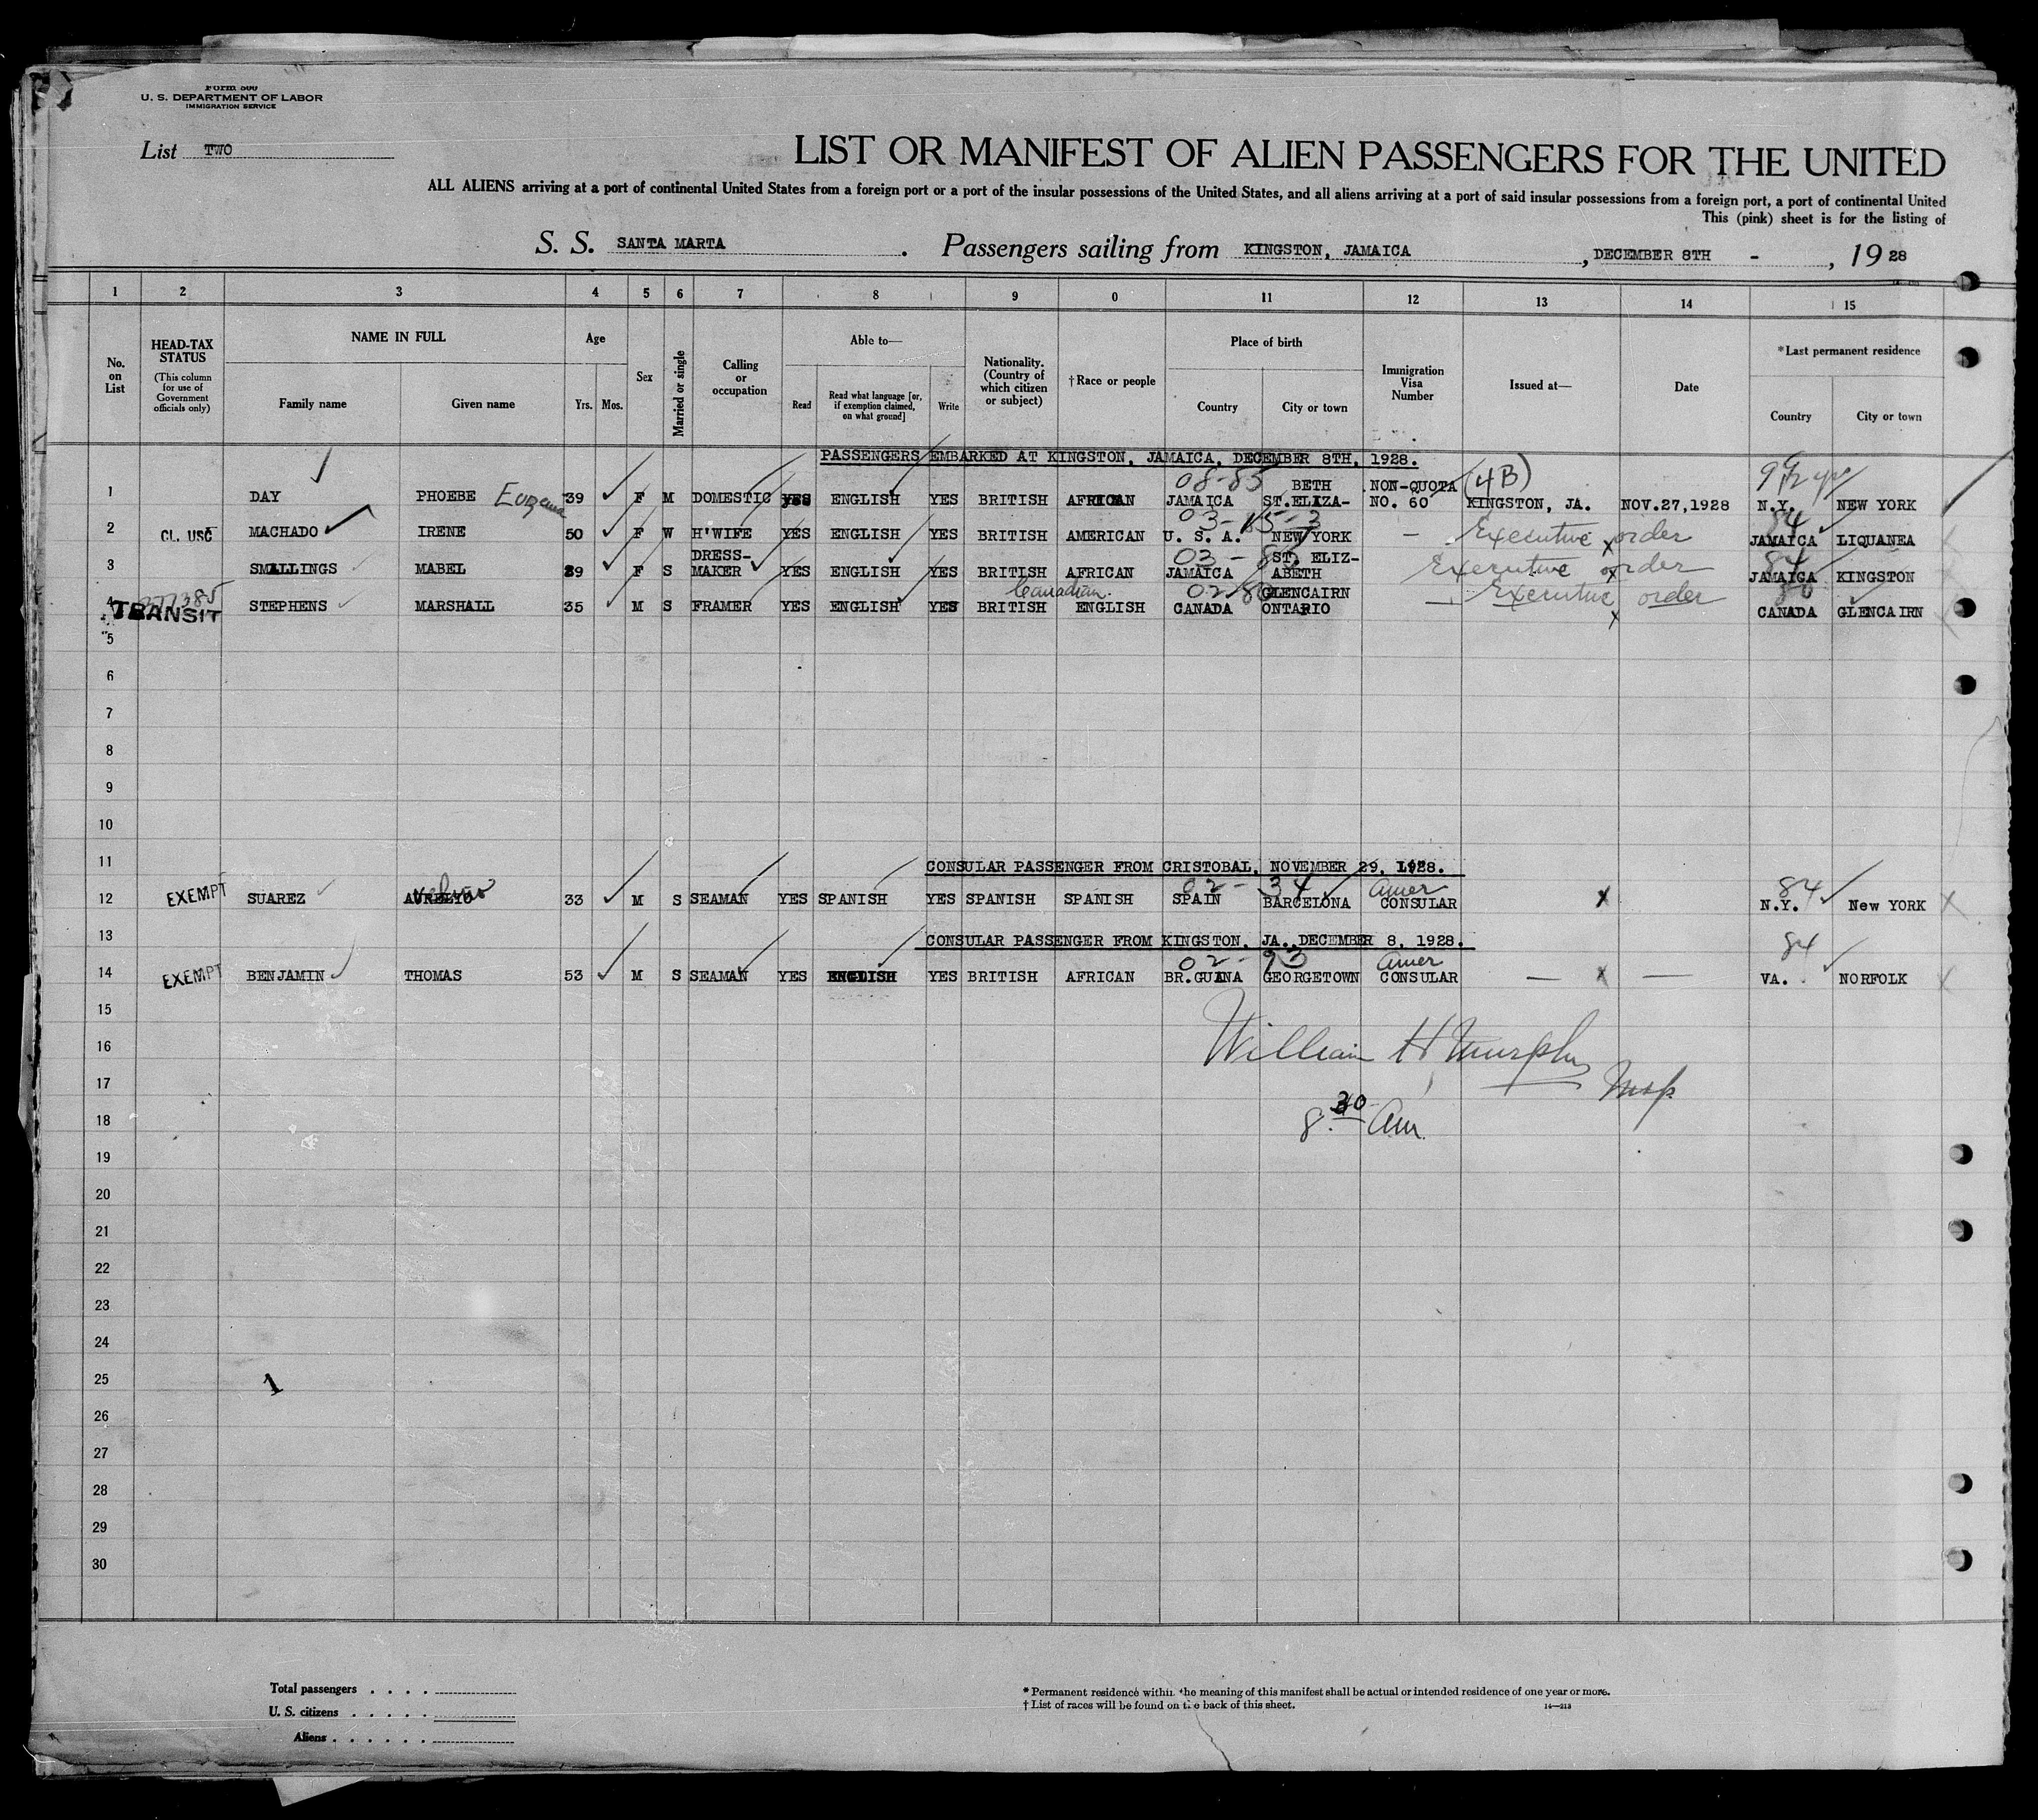 Form 500
U. S. DEPARTMENT OF LABOR
IMMIGRATION SERVICE
List TWO
LIST OR MANIFEST OF ALIEN PASSENGERS FOR THE UNITED
ALL ALIENS arriving at a port of continental United States from a foreign port or a port of the insular possessions of the United States, and all aliens arriving at a port of said insular possessions from a foreign port, a port of continental United
This (pink) sheet is for the listing of
S. S. SANTA MARTA . Passengers sailing from KINGSTON, JAMAICA , DECEMBER 8TH - , 19 28
1 2 3 4 5 6 7 8 9 0 11 12 13 14 15
No. on List
HEAD-TAX STATUS (This column for use of Government officials only)
NAME IN FULL
Family name Given name
Age
Yrs. Mos.
Sex
Married or single
Calling or occupation
Able to—
Read Read what language [or, if exemption claimed, on what ground] Write
Nationality. (Country of which citizen or subject)
†Race or people
Place of birth
Country City or town
Immigration Visa Number
Issued at—
Date
*Last permanent residence
Country City or town
PASSENGERS EMBARKED AT KINGSTON, JAMAICA, DECEMBER 8TH, 1928.
08-85 BETH NON-QUOTA (4B)
1 DAY PHOEBE 39 F M DOMESTIC YES ENGLISH YES BRITISH AFRICAN JAMAICA ST.ELIZA- NO. 60 KINGSTON, JA. NOV.27,1928 N.Y. NEW YORK
03- 84
2 CL. USC MACHADO IRENE 50 F W H'WIFE YES ENGLISH YES BRITISH AMERICAN U. S. A. NEW YORK — Executive order JAMAICA LIQUANEA
DRESS- 03 - ST. ELIZ- 84
3 SMALLINGS MABEL 39 F S MAKER YES ENGLISH YES BRITISH AFRICAN JAMAICA ABETH Executive order JAMAICA KINGSTON
Canadian. GLENCAIRN
4 TRANSIT STEPHENS MARSHALL 35 M S FRAMER YES ENGLISH YES BRITISH ENGLISH CANADA ONTARIO — Executive order CANADA GLENCAIRN
5
6
7
8
9
10
11 CONSULAR PASSENGER FROM CRISTOBAL, NOVEMBER 29, 1928.
02- 34 Amer 84
12 EXEMPT SUAREZ 33 M S SEAMAN YES SPANISH YES SPANISH SPANISH SPAIN BARCELONA CONSULAR X N.Y. New YORK X
13 CONSULAR PASSENGER FROM KINGSTON, JA. DECEMBER 8, 1928.
02- 93 Amer 84
14 EXEMPT BENJAMIN THOMAS 53 M S SEAMAN YES ENGLISH YES BRITISH AFRICAN BR.GUANA GEORGETOWN CONSULAR — X — VA. NORFOLK
15
16 William H Murphy
17 Insp
18 8.30 Am.
19
20
21
22
23
24
25 1
26
27
28
29
30
Total passengers . . . .
U. S. citizens . . . . .
Aliens . . . . . .
* Permanent residence within the meaning of this manifest shall be actual or intended residence of one year or more.
† List of races will be found on the back of this sheet.
14—213